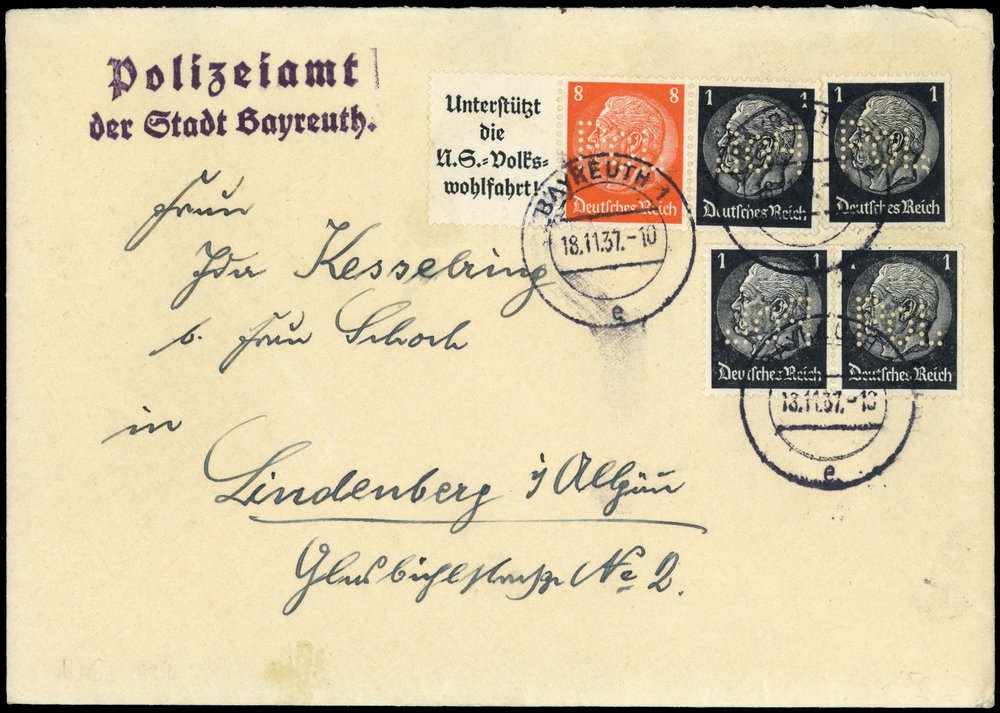 Polizeiamt
der Stadt Bayreuth.
Unterstützt
die
N.S.=Volks=
wohlfahrt!
8 8
Deutsches Reich
1 1
Deutsches Reich
1 1
Deutsches Reich
BAYREUTH 1
18.11.37.-10
e
Frau
Ida Kesselring
b. Frau Schoch
1 1
Deutsches Reich
1 1
Deutsches Reich
18.11.37.-10
e
in
Lindenberg i/Allgäu
No 2.